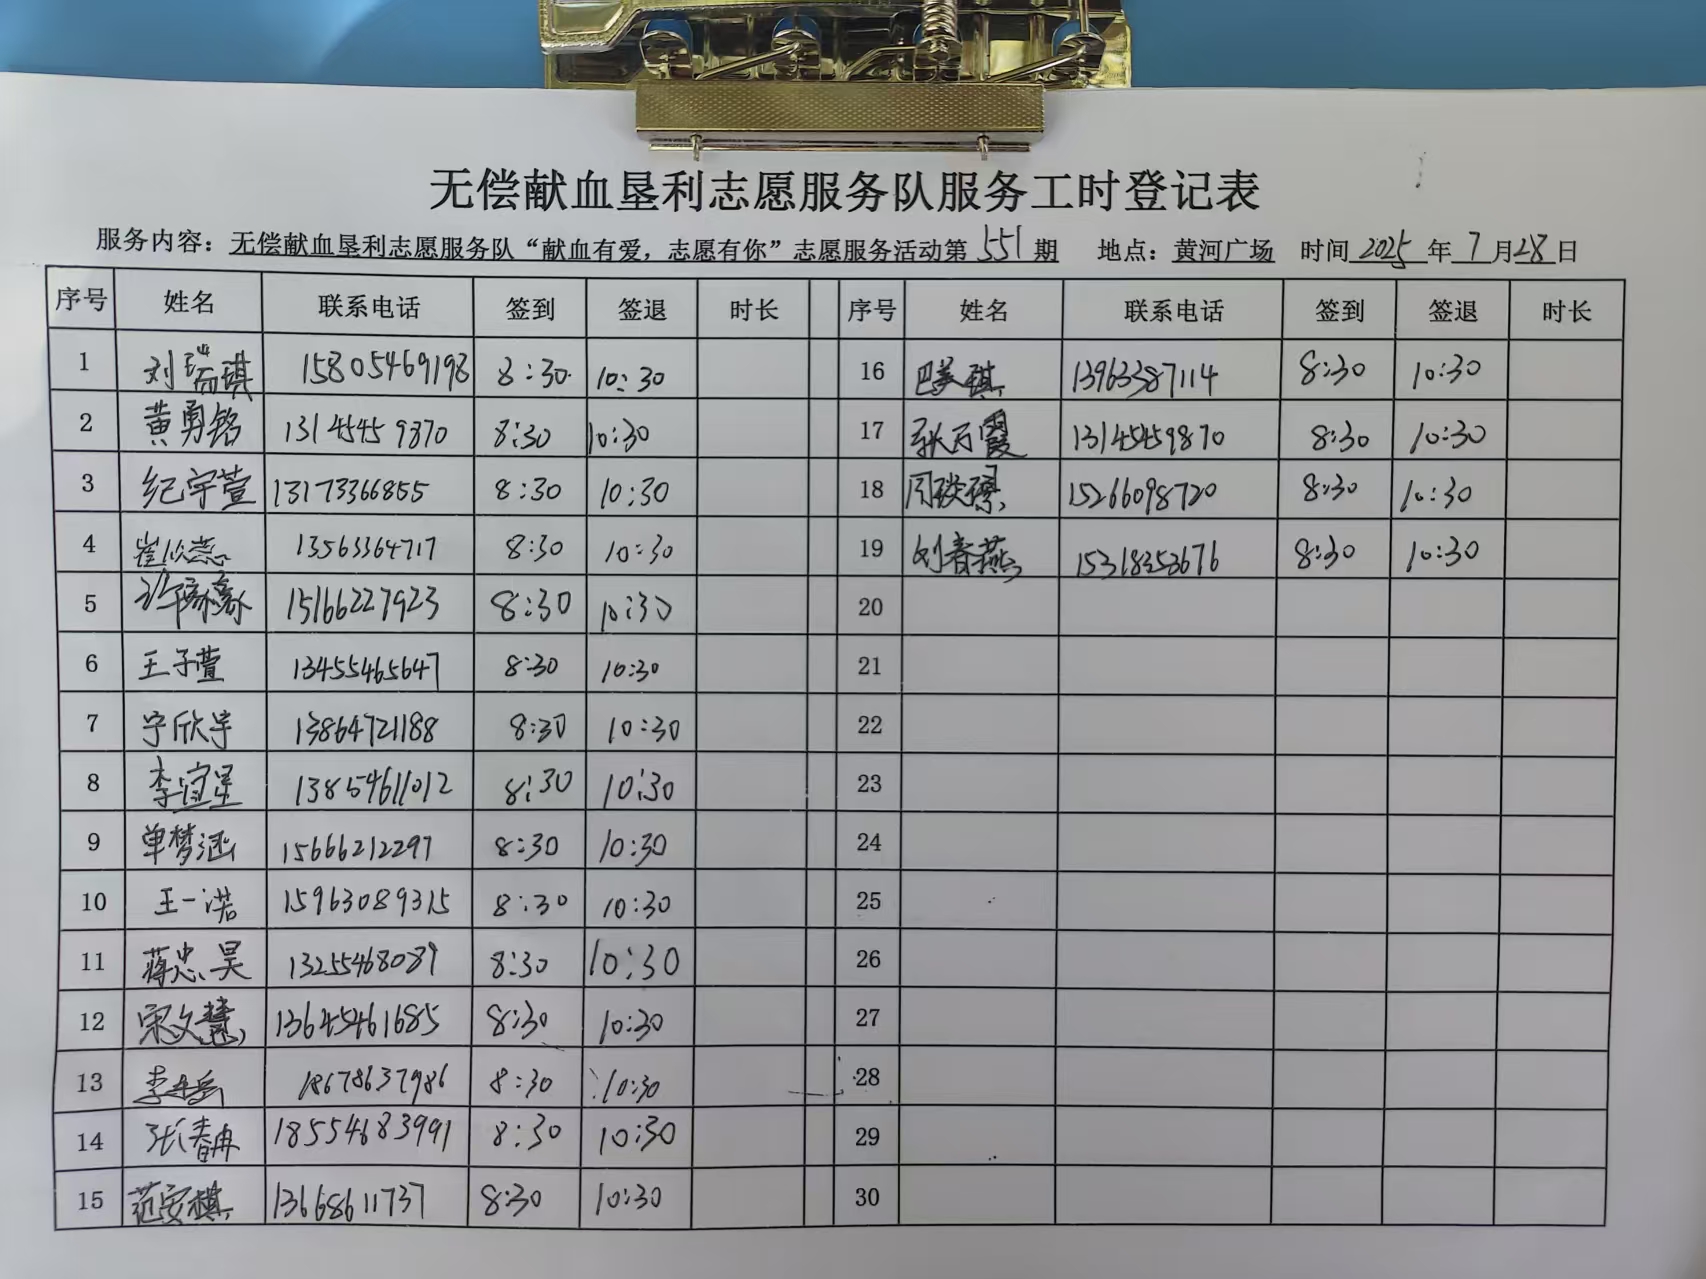 无偿献血垦利志愿服务队服务工时登记表
服务内容：无偿献血垦利志愿服务队“献血有爱，志愿有你”志愿服务活动第 551 期 地点：黄河广场 时间 2025 年 7 月 28 日
序号 姓名 联系电话 签到 签退 时长 序号 姓名 联系电话 签到 签退 时长
1 刘瑞琪 15805469198 8:30 10:30 16 巴美琪 13963387114 8:30 10:30
2 黄勇铭 13145459870 8:30 10:30 17 张万霞 13145459870 8:30 10:30
3 纪宇萱 13173366855 8:30 10:30 18 周 15266098720 8:30 10:30
4 崔欣蕊 13563364717 8:30 10:30 19 刘春燕 15318353676 8:30 10:30
5 许 15166227923 8:30 10:30 20
6 王子萱 13455465647 8:30 10:30 21
7 宁欣宇 13864721188 8:30 10:30 22
8 李宜星 13854611012 8:30 10:30 23
9 单梦涵 15666212297 8:30 10:30 24
10 王一诺 15963089315 8:30 10:30 25
11 蒋忠昊 13255468089 8:30 10:30 26
12 宋文慧 13645461685 8:30 10:30 27
13 李 18678637986 8:30 10:30 28
14 张春冉 18554683991 8:30 10:30 29
15 范安棋 13668611737 8:30 10:30 30